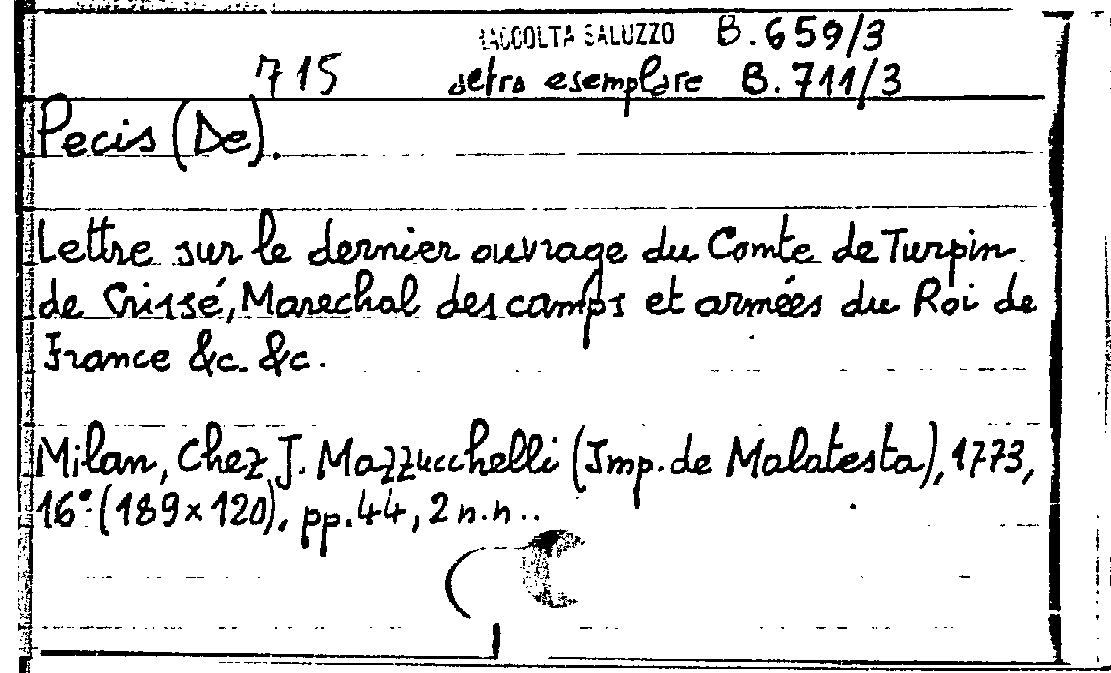 RACCOLTA SALUZZO B.659/3
715 altro esemplare B.711/3
Pecis (De).
Lettre sur le dernier ouvrage du Comte de Turpin
de Crissé, Marechal des camps et armées du Roi de
France &c. &c.
Milan, Chez J. Mazzucchelli (Imp. de Malatesta), 1773,
16° (189×120), pp. 44, 2 n.n..